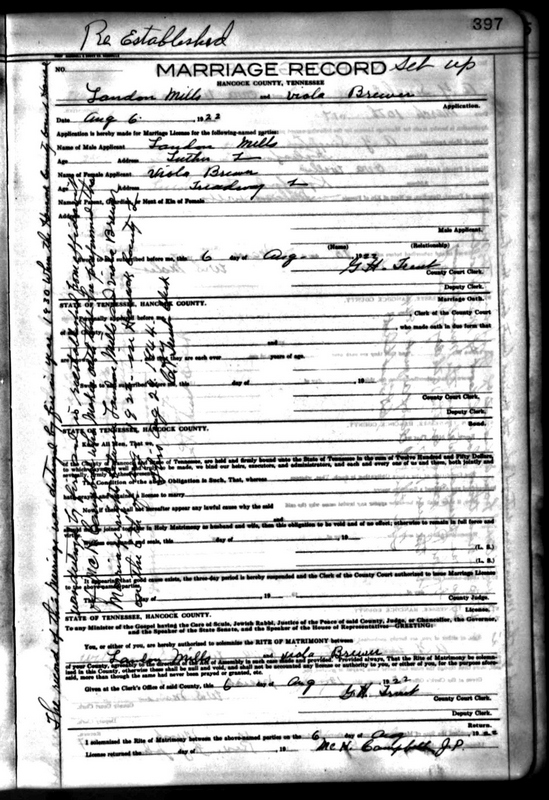 397
Re Established
NO.
MARRIAGE RECORD Set up
HANCOCK COUNTY, TENNESSEE
Landon Mills and Viola Brewer
Application.
Date Aug 6 1922
Application is hereby made for Marriage License for the following-named parties:
Name of Male Applicant Landon Mills
Age Address Luther T
Name of Female Applicant Viola Brewer
Age Treadway T
Name of Parent, Guardian, or Next of Kin of Female
Address
Male Applicant.
(Name) (Relationship)
subscribed before me, this 6 day of Aug 1922
G. H. Trent
County Court Clerk.
Deputy Clerk.
STATE OF TENNESSEE, HANCOCK COUNTY. Marriage Oath.
Personally appeared before Clerk of the County Court
of the County, who made oath in due form that
and
that they are each over years of age.
Sworn to and subscribed before me, this day of , 19
County Court Clerk.
Deputy Clerk.
STATE OF TENNESSEE, HANCOCK COUNTY. Bond.
Know All Men, That we,
of the County of are held and firmly bound unto the State of Tennessee in the sum of Twelve Hundred and Fifty Dollars,
to be made, we bind our heirs, executors, and administrators, and each and every one of us and them, both jointly and
The Condition of the above Obligation is Such, That, whereas
has prayed and a license to marry
Now, if there shall not hereafter appear any lawful cause why the said
and
should not be joined together in Holy Matrimony as husband and wife, then this obligation to be void and of no effect; otherwise to remain in full force and
Witness our hands and seals, this day of 19
(L. S.)
(L. S.)
It appearing that good cause exists, the three-day period is hereby suspended and the Clerk of the County Court authorized to issue Marriage License
to the above-named parties.
This day of , 19
County Judge.
STATE OF TENNESSEE, HANCOCK COUNTY. License.
To any Minister of the Gospel having the Care of Souls, Jewish Rabbi, Justice of the Peace of said County, Judge, or Chancellor, the Governor,
and the Speaker of the State Senate, and the Speaker of the House of Representatives—GREETING:
You, or either of you, are hereby authorized to solemnize the RITE OF MATRIMONY between
Landon Mills and Viola Brewer
of your County, agreeably to an Act of Assembly in such case made and provided. Provided always, That the Rite of Matrimony be solemnized
in this County, otherwise these shall be null and void, and shall not be of any license or authority to you, or either of you, for the purpose aforesaid,
more than though the same had never been prayed or granted, etc.
Given at the Clerk's Office of said County, this 6 day of Aug 1922
G. H. Trent
County Court Clerk.
Deputy Clerk.
Return.
I solemnized the Rite of Matrimony between the above-named parties on the 6 day of Aug 1922
License returned the day of , 19 McK. Campbell J.P.
The record of this Marriage was destroyed by fire in year 1930 when the Hancock County Court House
was destroyed
of McK Campbell who
Marriage Landon Mills and Viola Brewer
on the 6th 1922 in Hancock County
This Aug 24 1944